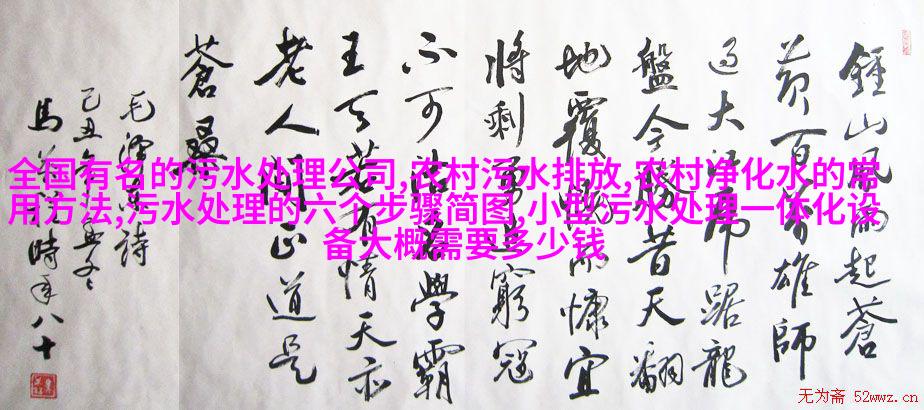 鍾山風雨起蒼
黃百萬雄師
過大江虎踞龍
盤今勝昔天翻
地覆慨而慷宜
將剩勇追窮寇
不可沽名學霸
王天若有情天亦
老人間正道是
蒼桑
毛澤東詩
己丑年冬
馬時年八十
全国有名的污水处理公司,农村污水排放,农村净化水的常
用方法,污水处理的六个步骤简图,小型污水处理一体化设
备大概需要多少钱
无为斋 52wwz.cn